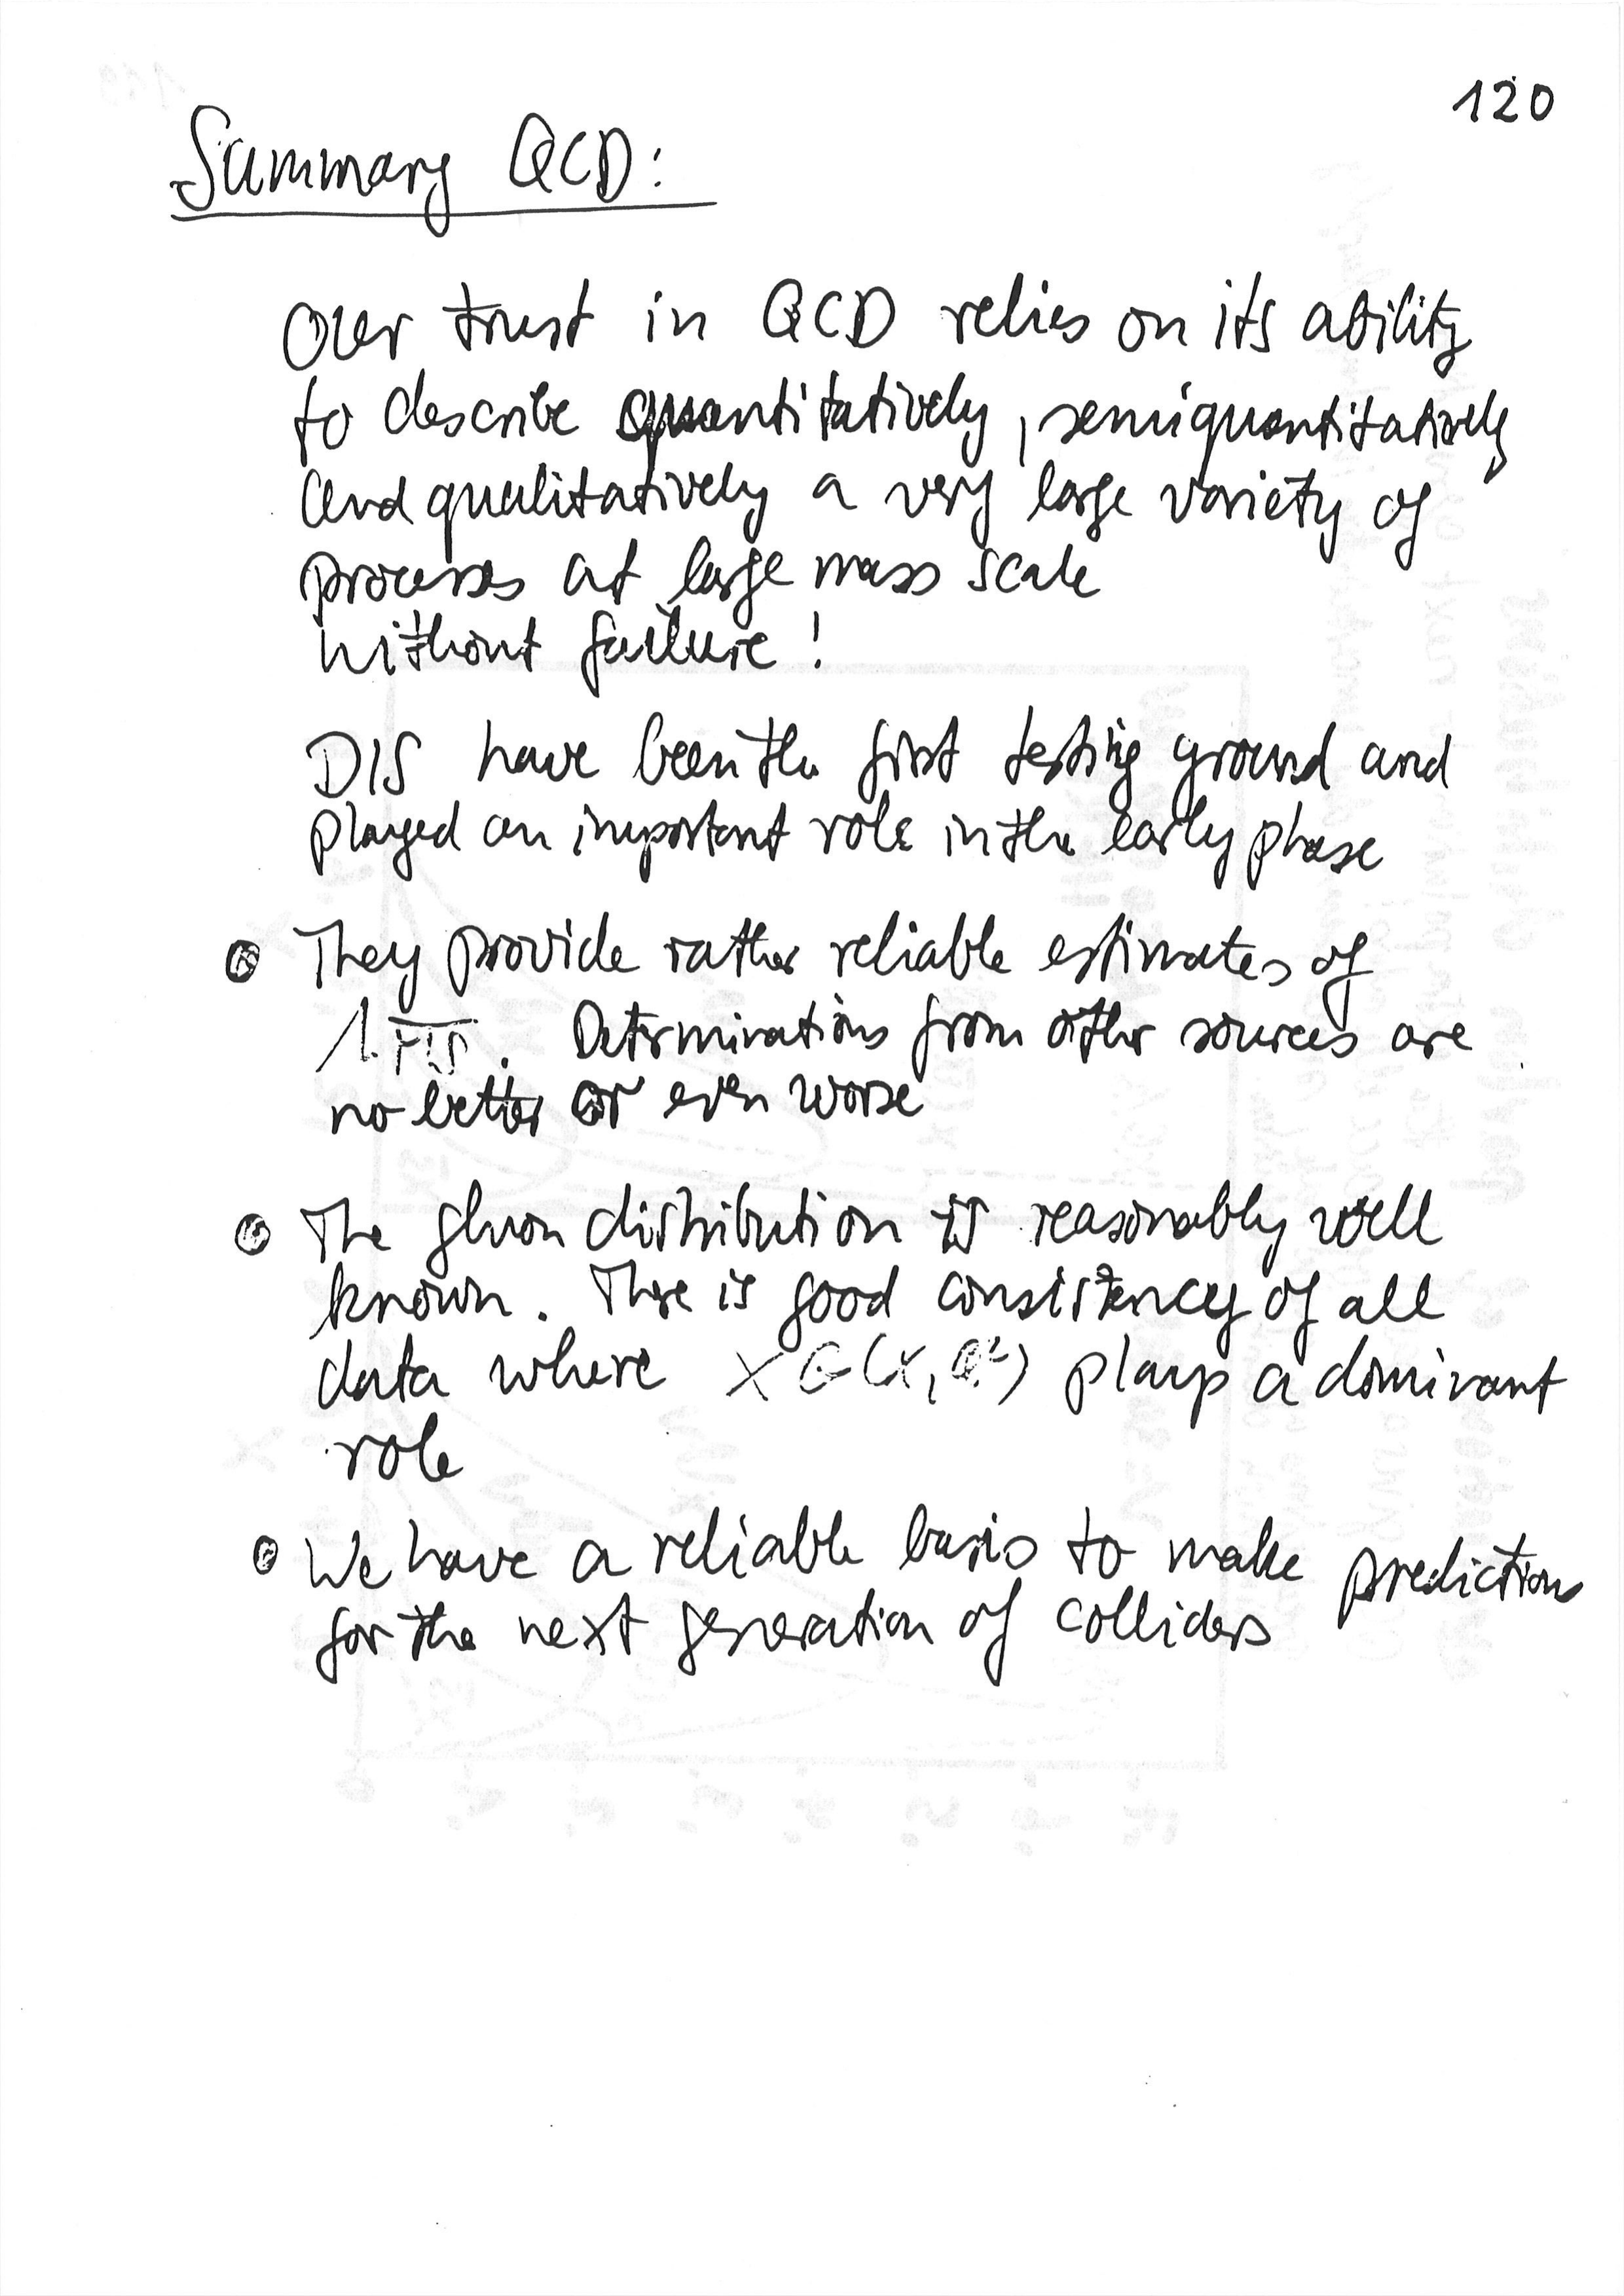 120
Summary QCD:
Our trust in QCD relies on its ability
to describe quantitatively, semiquantitatively
and qualitatively a very large variety of
processes at large mass scale
without failure!
DIS have been the first testing ground and
played an important role in the early phase
They provide rather reliable estimates of
Determinations from other sources are
no better or even worse
The gluon distribution is reasonably well
known. There is good consistency of all
data where x G(x, Q²) plays a dominant
role
We have a reliable basis to make predictions
for the next generation of colliders